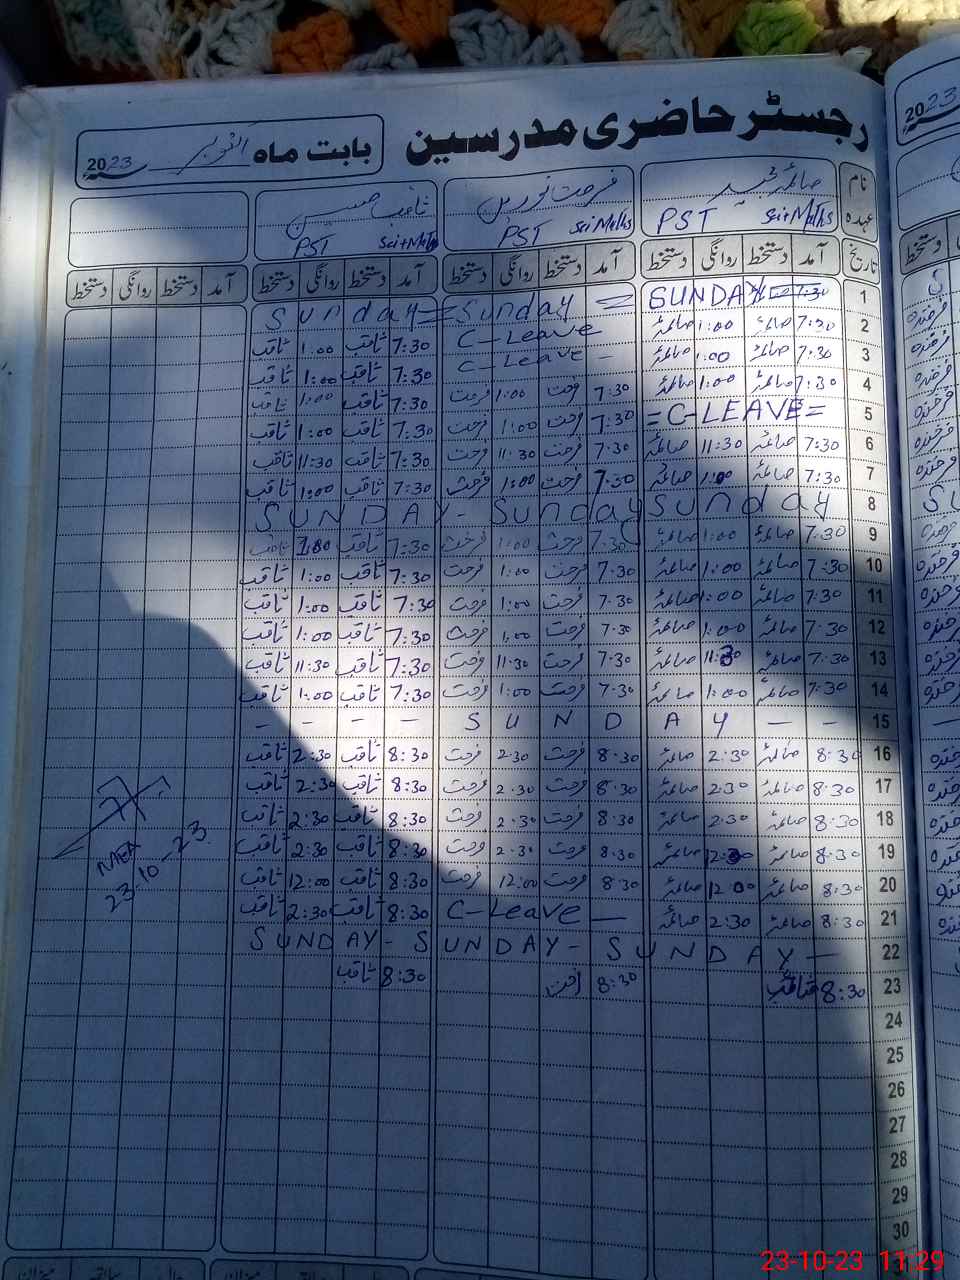 رجسٹر حاضری مدرسین
بابت ماہ اکتوبر 2023
نام صائمہ فرحت نورین ثاقب حسین
عہدہ PST Sci+Maths PST Sci Maths PST Sci+Maths
تاریخ آمد دستخط روانگی دستخط آمد دستخط روانگی دستخط آمد دستخط روانگی دستخط آمد دستخط روانگی دستخط
1 SUNDAY 7:30 = Sunday = Sunday
2 7:30 صائمہ 1:00 صائمہ C-Leave 7:30 ثاقب 1:00 ثاقب
3 7:30 صائمہ 1:00 صائمہ C-Leave – 7:30 ثاقب 1:00 ثاقب
4 7:30 صائمہ 1:00 صائمہ 7:30 فرحت 1:00 فرحت 7:30 ثاقب 1:00 ثاقب
5 =C-LEAVE= 7:30 فرحت 1:00 فرحت 7:30 ثاقب 1:00 ثاقب
6 7:30 صائمہ 11:30 صائمہ 7.30 فرحت 11.30 فرحت 7:30 ثاقب 11:30 ثاقب
7 7:30 صائمہ 1:00 صائمہ 7.30 فرحت 1:00 فرحت 7:30 ثاقب 1:00 ثاقب
8 SUNDAY - Sunday Sunday
9 7:30 صائمہ 1:00 صائمہ 7:30 فرحت 1:00 فرحت 7:30 ثاقب 1:00 ثاقب
10 7:30 صائمہ 1:00 صائمہ 7.30 فرحت 1:00 فرحت 7:30 ثاقب 1:00 ثاقب
11 7:30 صائمہ 1:00 صائمہ 7.30 فرحت 1:00 فرحت 7:30 ثاقب 1:00 ثاقب
12 7:30 صائمہ 1:00 صائمہ 7.30 فرحت 1:00 فرحت 7:30 ثاقب 1:00 ثاقب
13 7:30 صائمہ 11:30 صائمہ 7.30 فرحت 11.30 فرحت 7:30 ثاقب 11:30 ثاقب
14 7:30 صائمہ 1:00 صائمہ 7.30 فرحت 1:00 فرحت 7:30 ثاقب 1:00 ثاقب
15 – – – – SUNDAY – –
16 8:30 صائمہ 2:30 صائمہ 8.30 فرحت 2.30 فرحت 8:30 ثاقب 2:30 ثاقب
17 8:30 صائمہ 2:30 صائمہ 8.30 فرحت 2.30 فرحت 8:30 ثاقب 2:30 ثاقب
18 8:30 صائمہ 2:30 صائمہ 8.30 فرحت 2.30 فرحت 8:30 ثاقب 2:30 ثاقب
19 8:30 صائمہ صائمہ 8.30 فرحت 2.30 فرحت 8:30 ثاقب 2:30 ثاقب
20 8:30 صائمہ 12:00 صائمہ 8.30 فرحت 12:00 فرحت 8:30 ثاقب 12:00 ثاقب
21 8:30 صائمہ 2:30 صائمہ C-Leave — 8:30 ثاقب 2:30 ثاقب
22 SUNDAY- SUNDAY- SUNDAY –
23 8:30 8:30 8:30 ثاقب
24
25
26
27
28
29
30
MEA
23-10-23
2023
23-10-23 11:29